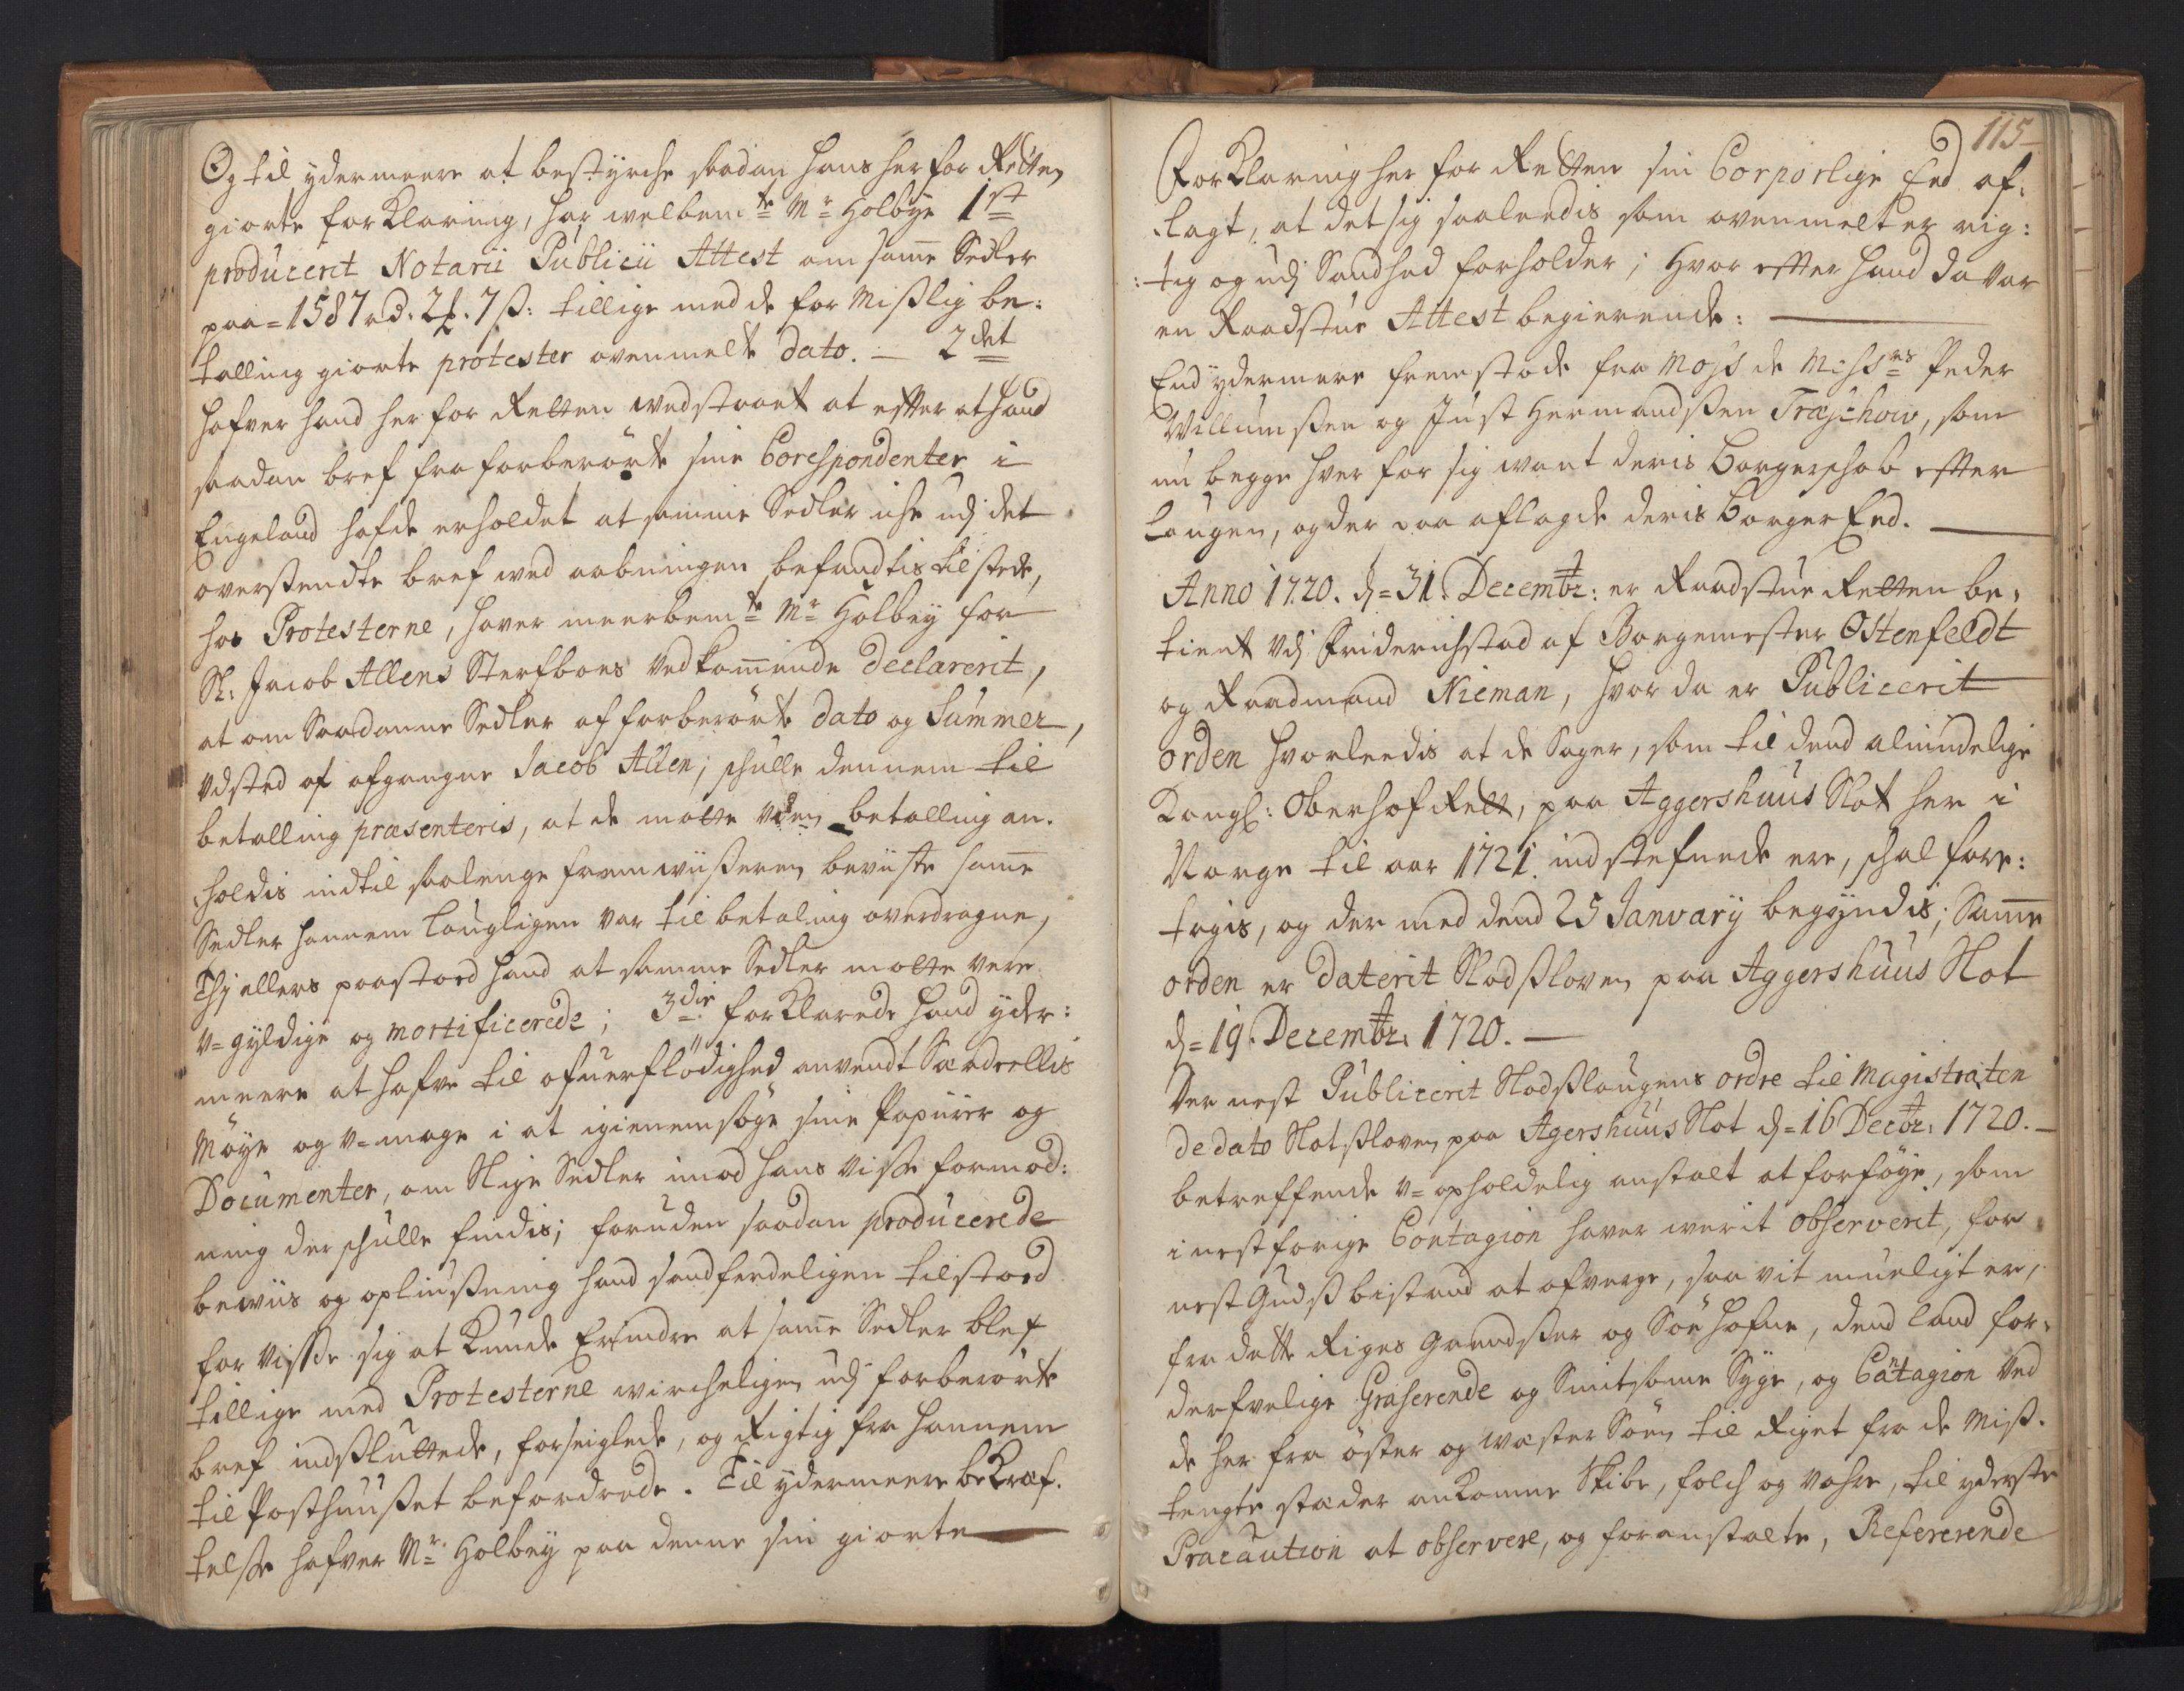 Og til ydermeere at bestyrche saadan hans her for Retten
giorte forKlaring, har welbemte Mr Holbye 1st
producerit Notarii Publicii Attest om samme Sedler
paa = 1587 rd. 2 . 7 ß: tillige med de for Mislig be:
talling giorte protester ovenmelte dato. — 2det
hafver hand her for Retten wedstaaet at efter at hand
saadan bref fra forberørte sine Corespondenter i
Engeland hafde erholdet at samme Sedler iche udj det
oversendte bref wed aabningen befandtis til stede,
hos Protesterne, haver meerbemte Mr Holbey for
Sl: Jacob Allens Sterfboes Vedkommende declarerit,
at om Saadanne Sedler af forberørte dato og Summer,
Vdsted af afgangne Jacob Allen, schulle dennem til
betalling præsenteris, at de motte Vden betalling an-
holdis indtil saalenge fremwiiseren beviiste samme
Sedler hannem laugligen var til betaling overdragne,
Thj ellers paastoed hand at samme Sedler motte vere
V=gyldige og mortificerede; 3die forKlarede hand yder:
meere at hafve til ofuerflødighed anvendt Særdeellis
Møye og V=mage i at igienemsøge sine Papiirer og
Documenter, om Slige Sedler imod hans Visse formod:
ning der schulle findis; foruden saadan producerede
bewiis og opliusning hand sandferdeligen tilstoed
for Visse sig at Kunde Erindre at samme Sedler blef
tillige med Protesterne wircheligen udj forberørte
bref indsluttede, forseiglede, og Rigtig fra hannem
til Posthuuset befordrede. Til ydermeere beKræf-
telse hafver Mr Holbey paa denne sin giorte
115
ForKlaring her for Retten sin Corporlige Eed af:
lagt, at det sig saaleedis som ovenmelt er rig:
:tig og udj Sandhed forholder; Hvor efter hand da var
en Raadstue Attest begierende:
End ydermere fremstode fra Moss de Messrs Peder
Willumsen og Just Hermandsen Træschow, som
nu begge hver for sig want deris Borgerschab efter
Laugen, og der paa aflagde deris Borger Eed.
Anno 1720. d = 31. Decembr: er Raadstue Retten be-
tient Vdj Friderichstad af Borgemester Ostenfeldt
og Raadmand Nieman, hvor da er Publicerit
orden hvorleedis at de Sager, som til dend almindelige
Kongl: OberhofRett, paa Aggershuus Slot her i
Norge til aar 1721. indstefnede ere, schal fore:
tagis, og der med dend 25 Janvary begyndis; Samme
orden er daterit Slodsloven paa Aggershuus Slot
d = 19. Decembr: 1720. —
Der nest Publicerit Slodslaugens ordre til Magistraten
de dato Slotsloven paa Agershuus Slot d = 16 Decbr: 1720. —
betreffende V=opholdelig anstalt at forføye, som
i nest forige Contagion haver werit observerit, for
nest Guds bistand at afverge, saa vit mueligt er,
fra dette Riges Grendser og Søe hafne, dend land for-
derfvelige Graserende og Smitsomme Syge, og Contagion Ved
de her fra øster og wæster Søen til Riget fra de Mis-
tengte stæder ankomne Skibe, folch og Vahre, til yderste
Præcaution at observere, og foranstalte, Refererende